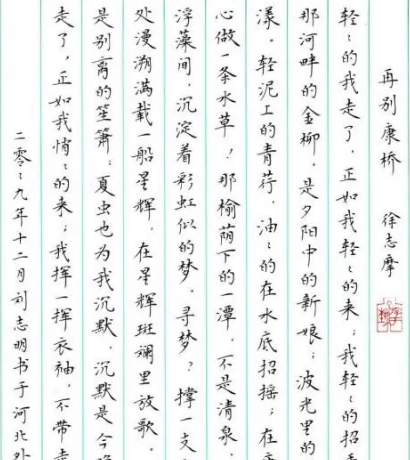 再别康桥 徐志摩
轻〻的我走了，正如我轻〻的来；我轻〻的招
那河畔的金柳，是夕阳中的新娘；波光里的
漾。轻泥上的青荇，油〻的在水底招摇；在
心做一条水草！那榆荫下的一潭，不是清泉，
浮藻间，沉淀着彩虹似的梦。寻梦？撑一支
处漫溯满载一船星辉，在星辉斑斓里放歌。
是别离的笙箫；夏虫也为我沉默，沉默是今
走了，正如我悄〻的来；我挥一挥衣袖，不带走
二零〻九年十二月刘志明书于河北